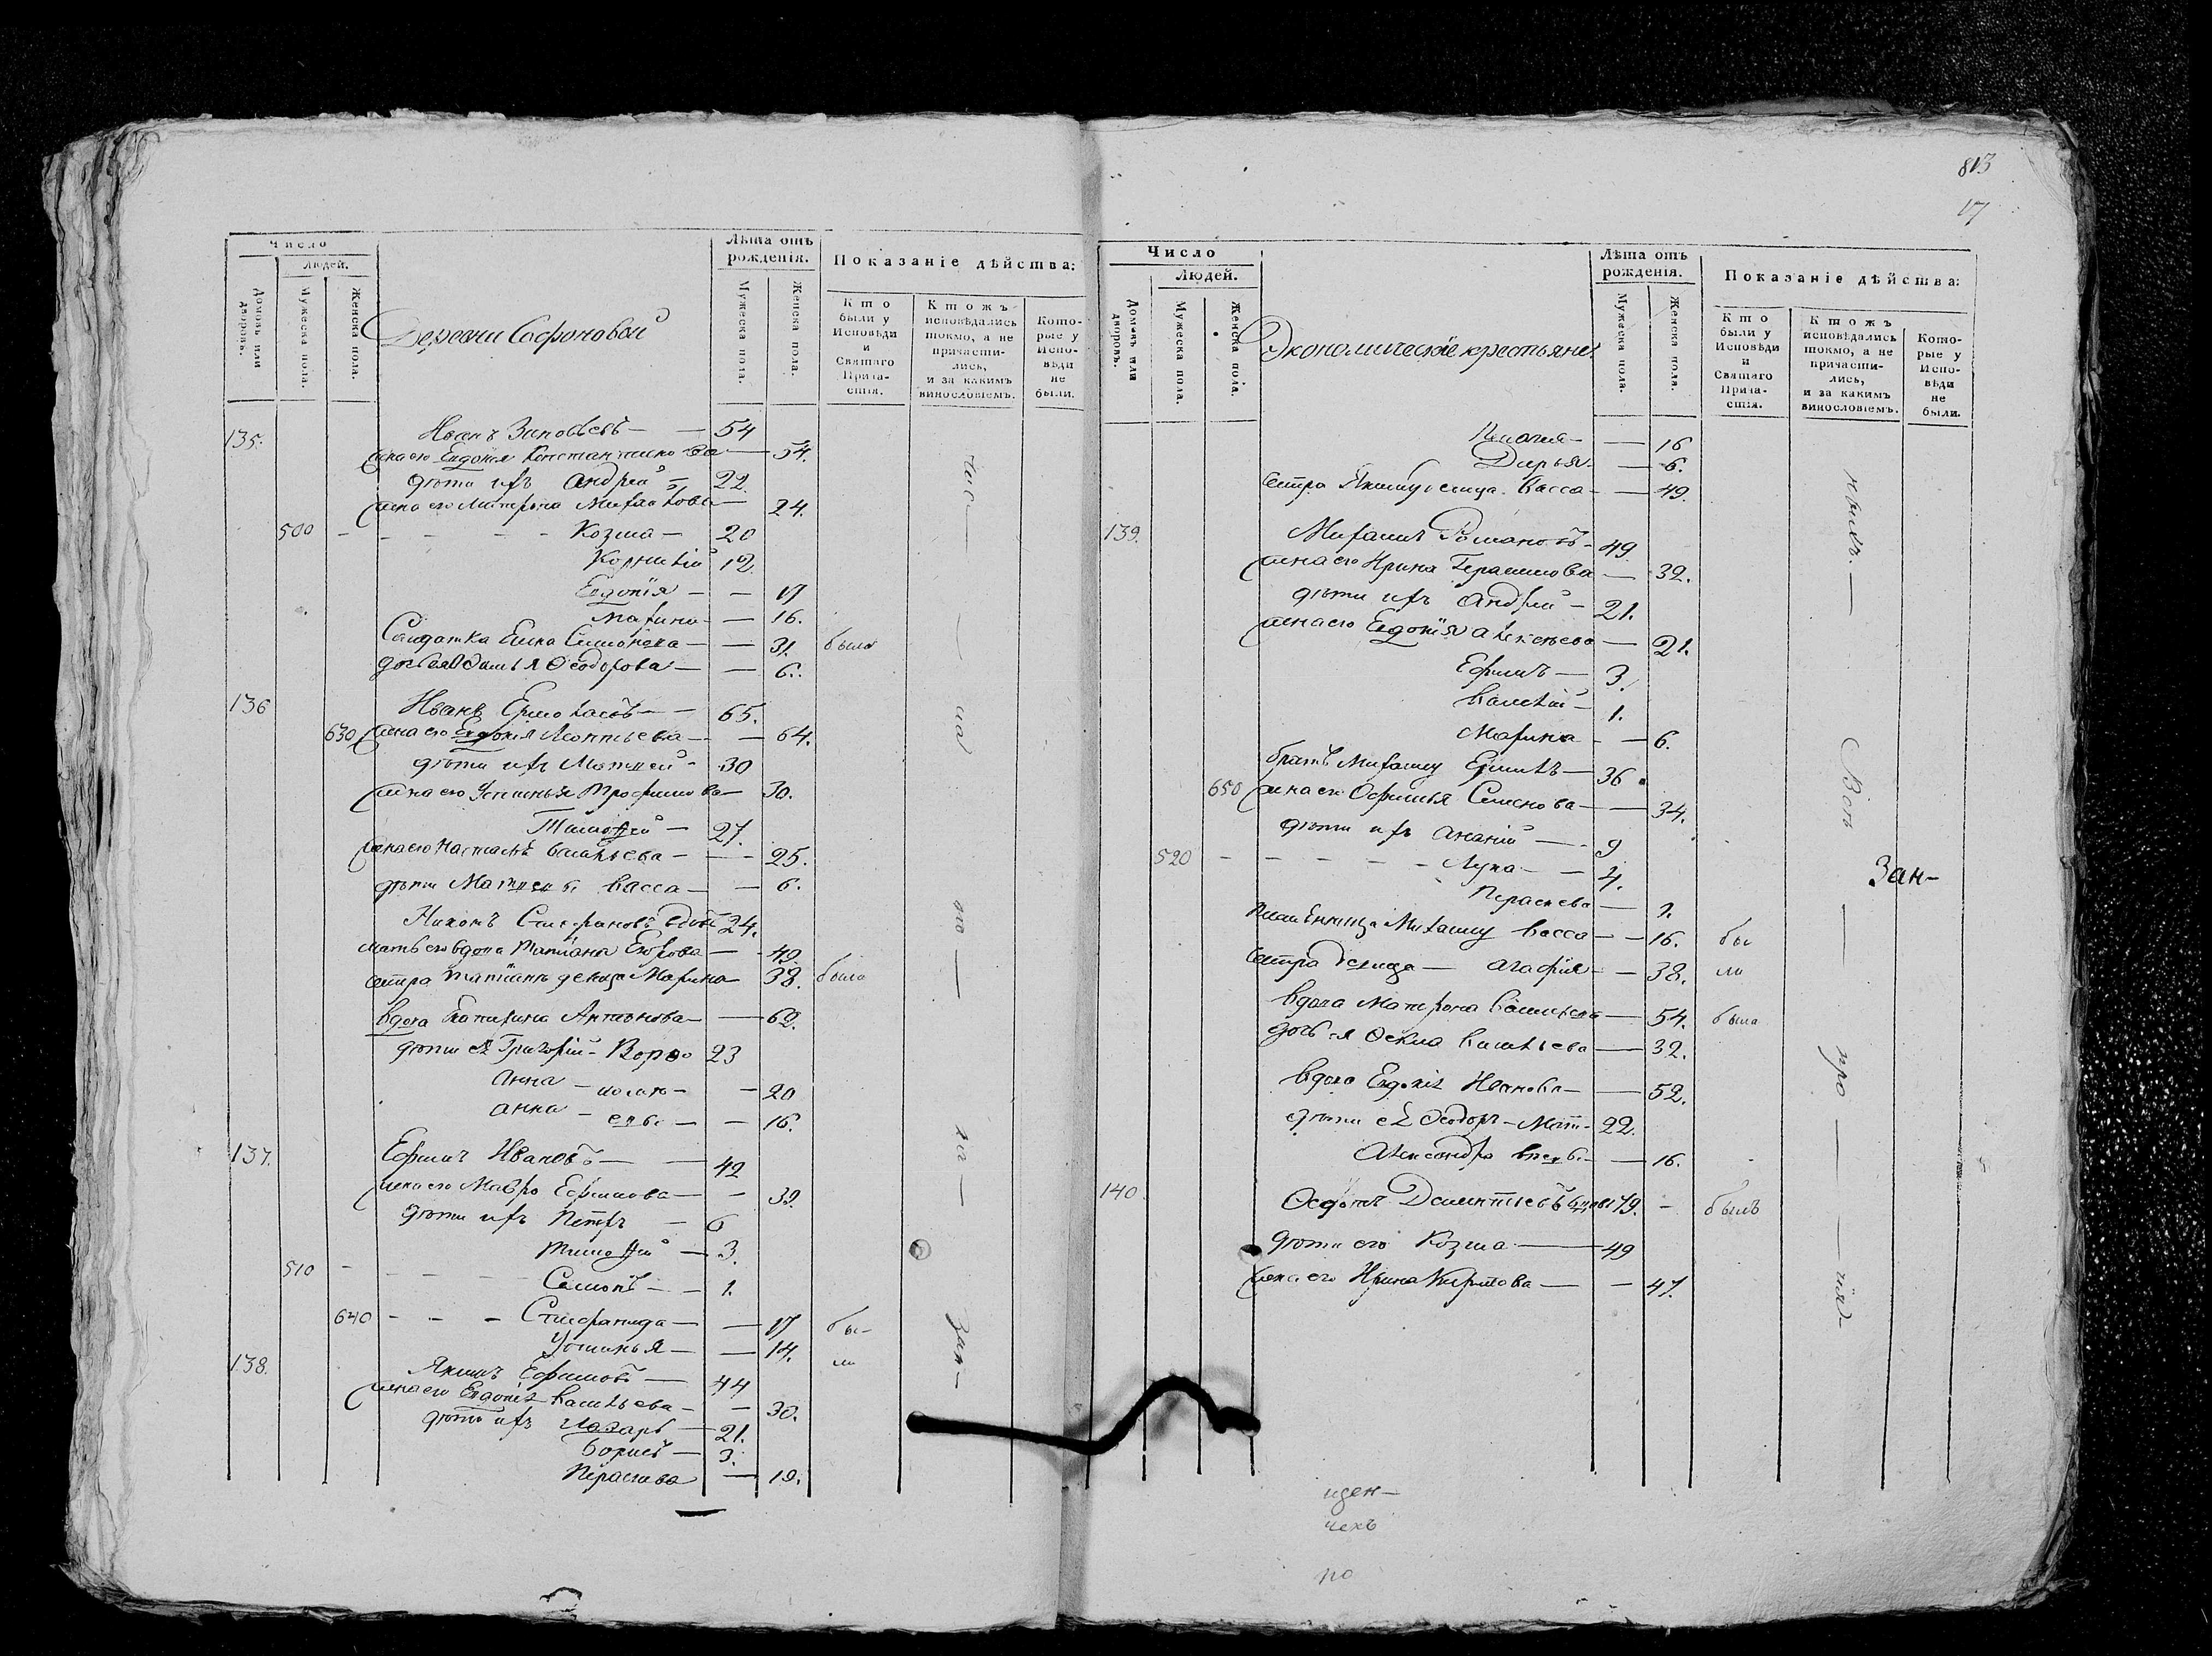 Число
Людей.
Домовъ или дворовъ.
Мужеска пола.
Женска пола.
Деревни Сафоновой
Лѣта отъ рожденія.
Мужеска пола.
Женска пола.
Показаніе дѣйства:
Кто были у Исповѣди и Святаго Причастія.
Ктожъ исповѣдались токмо, а не причастились, и за какимъ винословіемъ.
Которые у Исповѣди не были.
135. Иванъ Зиновьевъ — — 54
жена его Евдокія Константинова — 54.
дѣти ихъ Андрей — 22.
жена его Матрена Михайлова — 24.
500 - - - - Козма — 20
Корнилій 12.
Евдокія — — 17
Марина — — 16.
Салдатка Елена Симонова — — 31. была
дочь ея Ѳеодорова — — 6.
136 Иванъ Ермолаевъ — — 65.
630 жена его Евдокія Леонтьева — — 64.
дѣти ихъ Матвей - 30
жена его Устинья Трофимова — 30.
Тимофей — 27.
жена его Настасья Васильева — — 25.
дѣти Матвея Васса — — 6.
Никонъ Стефановъ вдовъ 24.
мать его вдова Татіана Егорова — 49.
сестра Татіаны девица Марина 38. была
вдова Катерина Антонова — — 62.
дѣти ея Григорій - 23
Анна — — 20
Анна — — 16.
137. Ефимъ Ивановъ — — 42
жена его Мавра Ефимова — — 39.
дѣти ихъ Петръ — 6
Тимофей — 3.
510 - - - - Симонъ — — 1.
640 - - - Стефанида — — 17 бы-
Устинья — — 14. ли
138. Якимъ Ефимовъ — 44
жена его Евдокія Васильева — — 30.
дѣти ихъ Лазарь — 21.
Борисъ — 3.
Параскева — 19.
813
17
Число
Людей.
Домовъ или дворовъ.
Мужеска пола.
Женска пола.
Экономическіе крестьяне
Лѣта отъ рожденія.
Мужеска пола.
Женска пола.
Показаніе дѣйства:
Кто были у Исповѣди и Святаго Причастія.
Ктожъ исповѣдались токмо, а не причастились, и за какимъ винословіемъ.
Которые у Исповѣди не были.
— 16
Дарья — 6.
сестра Якиму девица Васса — — 49.
139. Михаилъ Романовъ - 49.
жена его Ирина Герасимова — 32.
дѣти ихъ Андрей — 21.
жена его Евдокія Алексеева — 21.
Ефимъ — 3.
Василій — 1.
Марина - — 6.
братъ Михаилу — 36.
650 жена его Офимья Семенова — — 34.
дѣти ихъ Ананій — — 9
520 - - - - - Лука — — 4.
Параскева — 1.
племянница Михаилу Васса — — 16. бы
сестра девица — Агафія — — 38. ли
вдова Матрона Васильева — 54. была
дочь ея Ѳекла Васильева — 32.
вдова Евдокія Иванова — — 52.
дѣти ея Ѳеодоръ — 22.
Александра — — 16.
140. Ѳедотъ Дементьевъ вдовъ 79. - былъ
дѣти его Козма — 49
жена его Ирина Кирилова — — 47.
Зан-